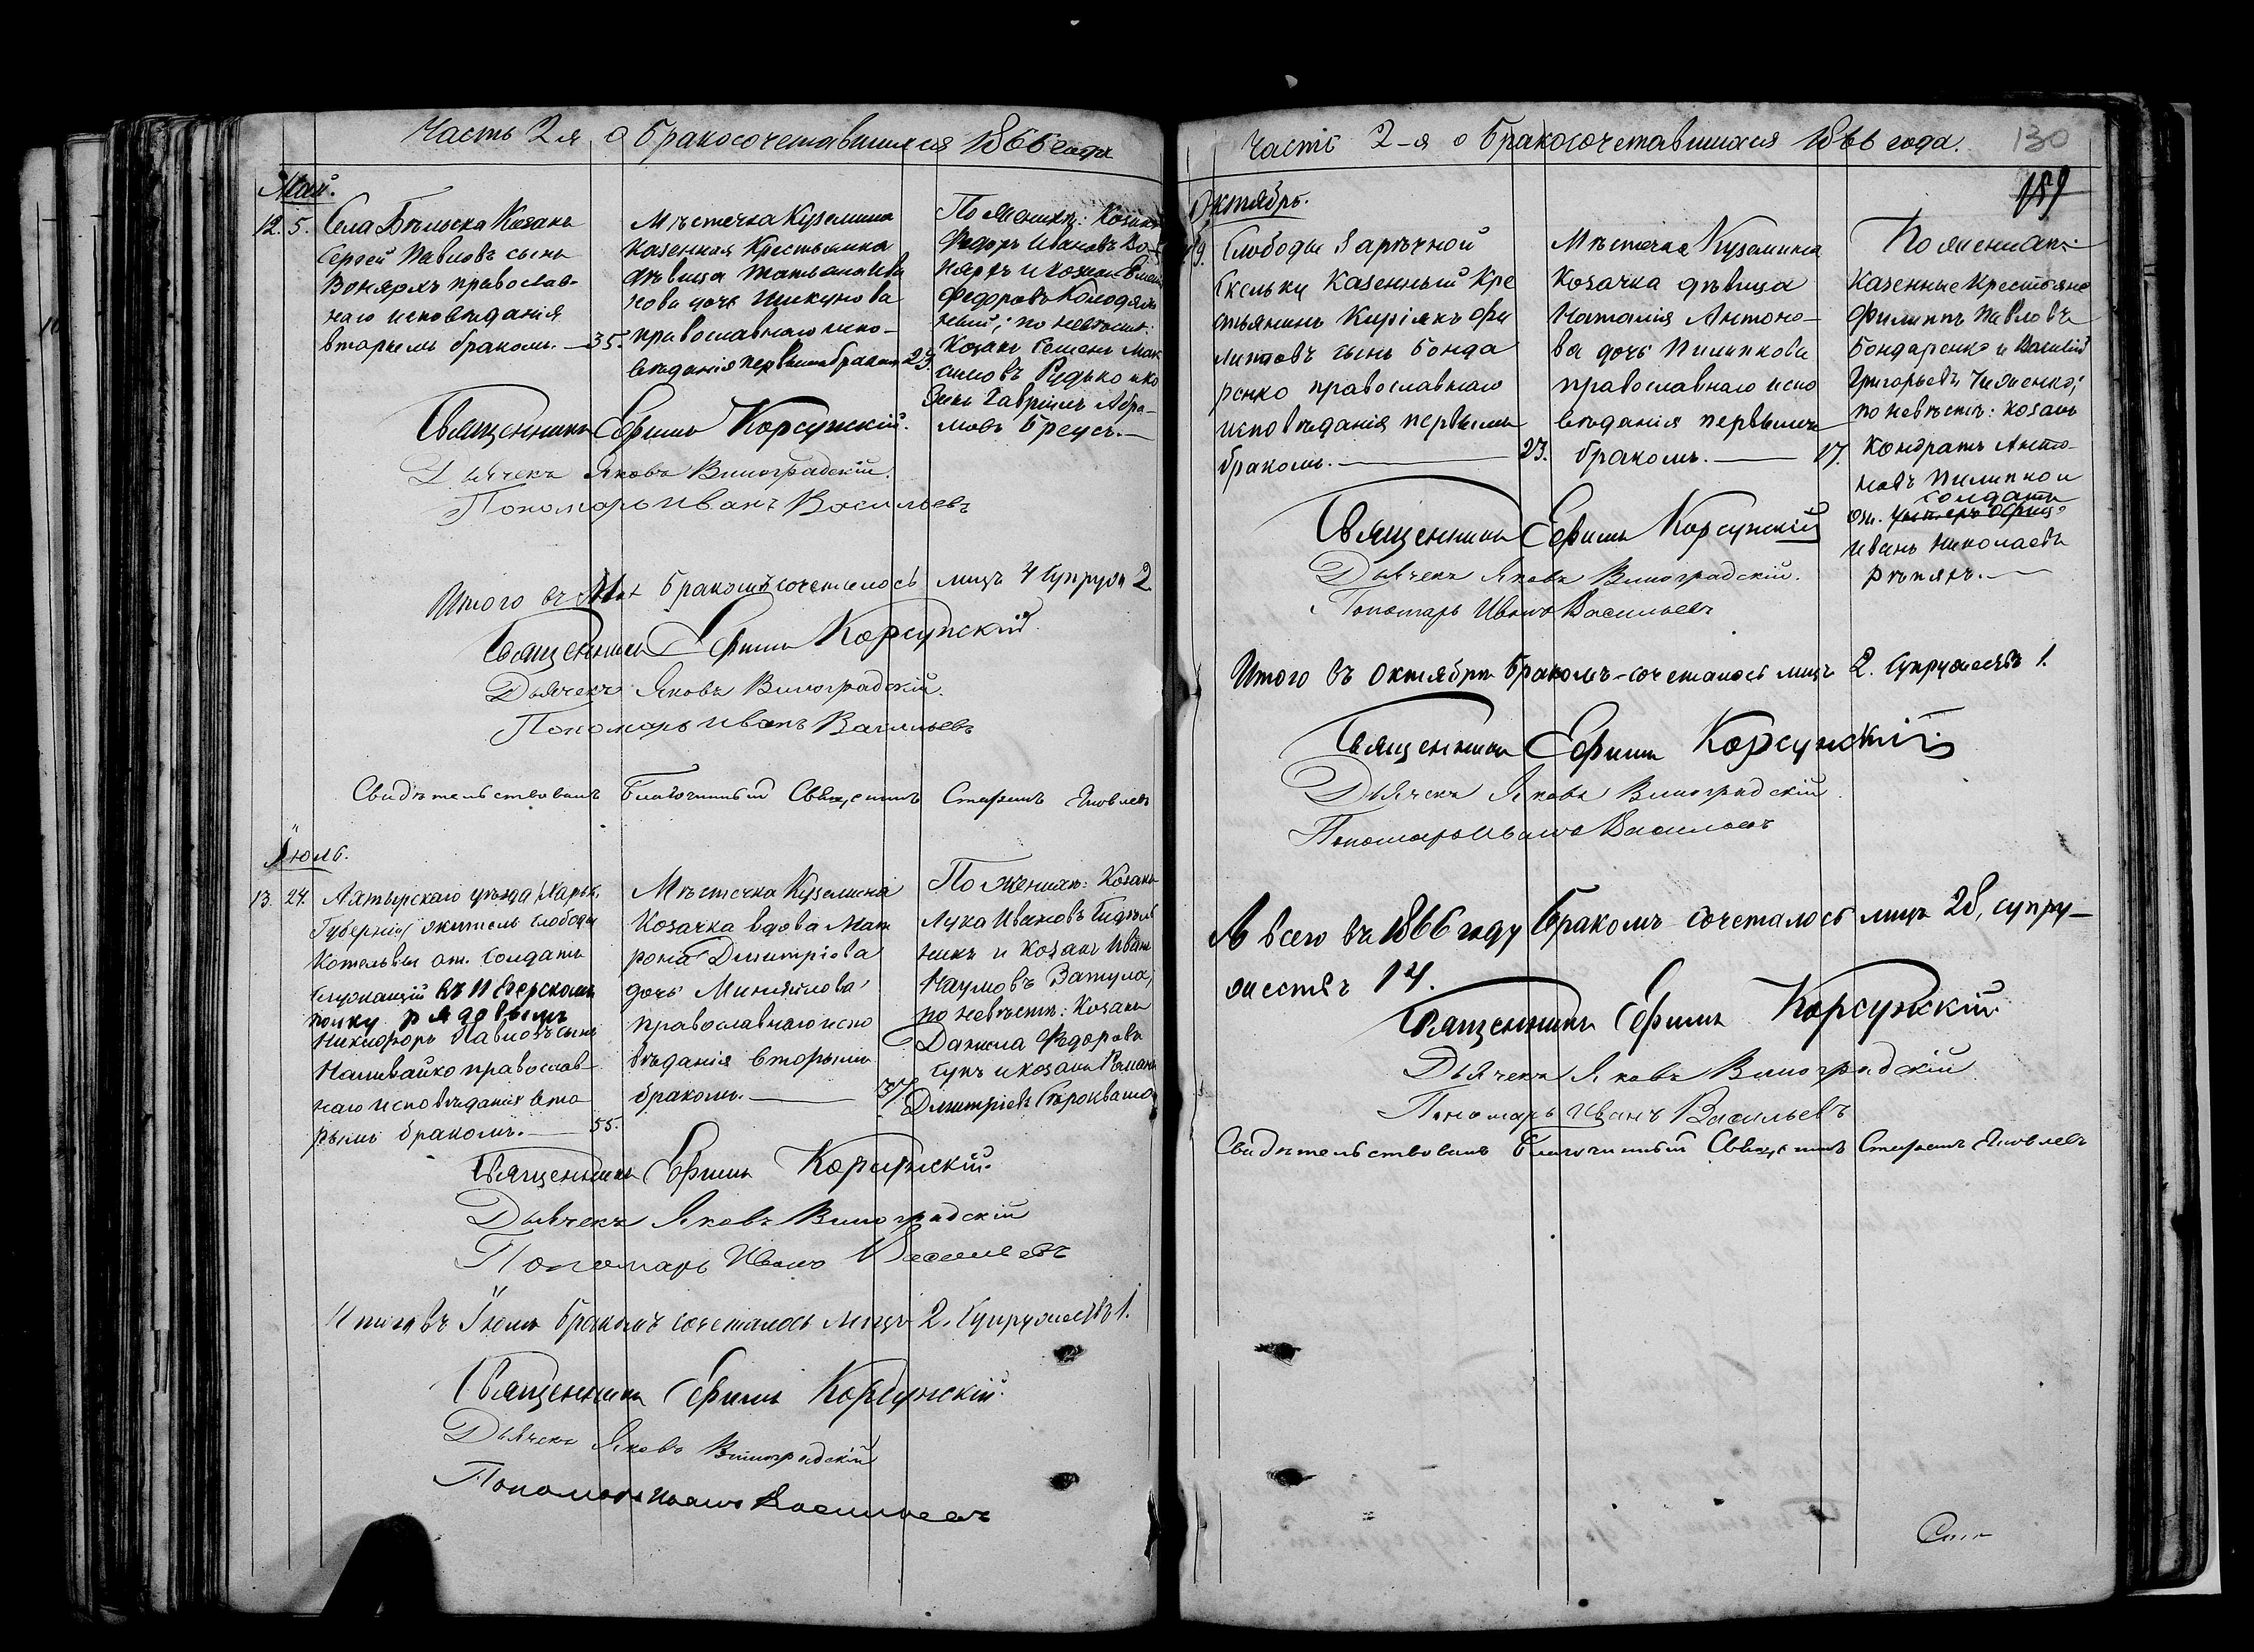 Часть 2я о бракосочетавшихся 1866 года
Май.
12. 5. Села Бѣльска Козакъ
Сергей Павловъ сынъ
Вонярхъ православ-
наго исповѣданія
вторымъ бракомъ. — 35.
Мѣстечка Куземина
казенная крестьянка
дѣвица Татьяна Ива
нова дочь Шикунова
православнаго испо-
вѣданія первымъ бракомъ 23.
По женихѣ: Козакъ
Федоръ Ивановъ Во-
нярхъ и козакъ
Федоровъ Колодяж
ный; по невѣстѣ:
Козакъ Семенъ Мак
симовъ Рудько и ко
закъ Гавріилъ Абра-
мовъ Бреусъ.—
Священникъ Ефимъ Корсунскій.
Дьячекъ Яковъ Виноградскій.
Пономарь Иванъ Васильевъ
Итого въ Маѣ бракомъ сочеталось лицъ 4 супруж 2
Священникъ Ефимъ Корсунскій
Дьячекъ Яковъ Виноградскій.
Пономарь Иванъ Васильевъ
Свидѣтельствовалъ Благочинный Священникъ Стефанъ Яновлевъ
Іюль.
13. 24. Ахтырскаго уѣзда Харьк.
Губерніи житель слободы
Котельвы от. солдатъ
служащій въ 11 Егерскомъ
полку рядовымъ
Никифоръ Павловъ сынъ
Наливайко православ-
наго исповѣданія вто
рымъ бракомъ. — 55.
Мѣстечка Куземина
Козачка вдова Мат
рона Дмитріева
дочь Миняйлова
православнаго испо
вѣданія вторымъ
бракомъ. — 37.
По женихѣ: Козакъ
Лука Ивановъ
никъ и козакъ Иванъ
Наумовъ Ватула;
по невѣстѣ: Козакъ
Данила Федоровъ
Супъ и козакъ Романъ
Дмитріевъ Сыроквашъ
Священникъ Ефимъ Корсунскій.
Дьячекъ Яковъ Виноградскій
Пономарь Иванъ Васильевъ
Итого въ Іюлѣ бракомъ сочеталось лицъ 2. супружествъ 1.
Священникъ Ефимъ Корсунскій.
Дьячекъ Яковъ Виноградскій
Пономарь Иванъ Васильевъ
Часть 2-я о бракосочетавшихся 1866 года. 130
159
Октябрь.
9. Слободы Зарѣчной
Скельки Казенный Кре
стьянинъ Киріякъ Фи
липповъ сынъ Бонда
ренко православнаго
исповѣданія первымъ
бракомъ. — 23.
Мѣстечка Куземина
Козачка дѣвица
Наталія Антоно-
ва дочь Пилипкова
православнаго испо
вѣданія первымъ
бракомъ. — 17.
По женихѣ:
Казенные Крестьяне
Филиппъ Павловъ
Бондаренко и Василій
Григорьевъ Чиженко;
по невѣстѣ: козакъ
Кондратъ Анто-
новъ Пилипко и
солдатъ
Иванъ Николаевъ
Рѣпяхъ.—
Священникъ Ефимъ Корсунскій
Дьячекъ Яковъ Виноградскій.
Пономарь Иванъ Васильевъ
Итого въ Октябрѣ бракомъ-сочеталось лицъ 2. супружествъ 1.
Священникъ Ефимъ Корсунскій
Дьячекъ Яковъ Виноградскій.
Пономарь Иванъ Васильевъ
А всего въ 1866 году бракомъ сочеталось лицъ 28, супру-
жествъ 14.
Священникъ Ефимъ Корсунскій.
Дьячекъ Яковъ Виноградскій
Пономарь Иванъ Васильевъ
Свидѣтельствовалъ Благочинный Священникъ Стефанъ Яновлевъ